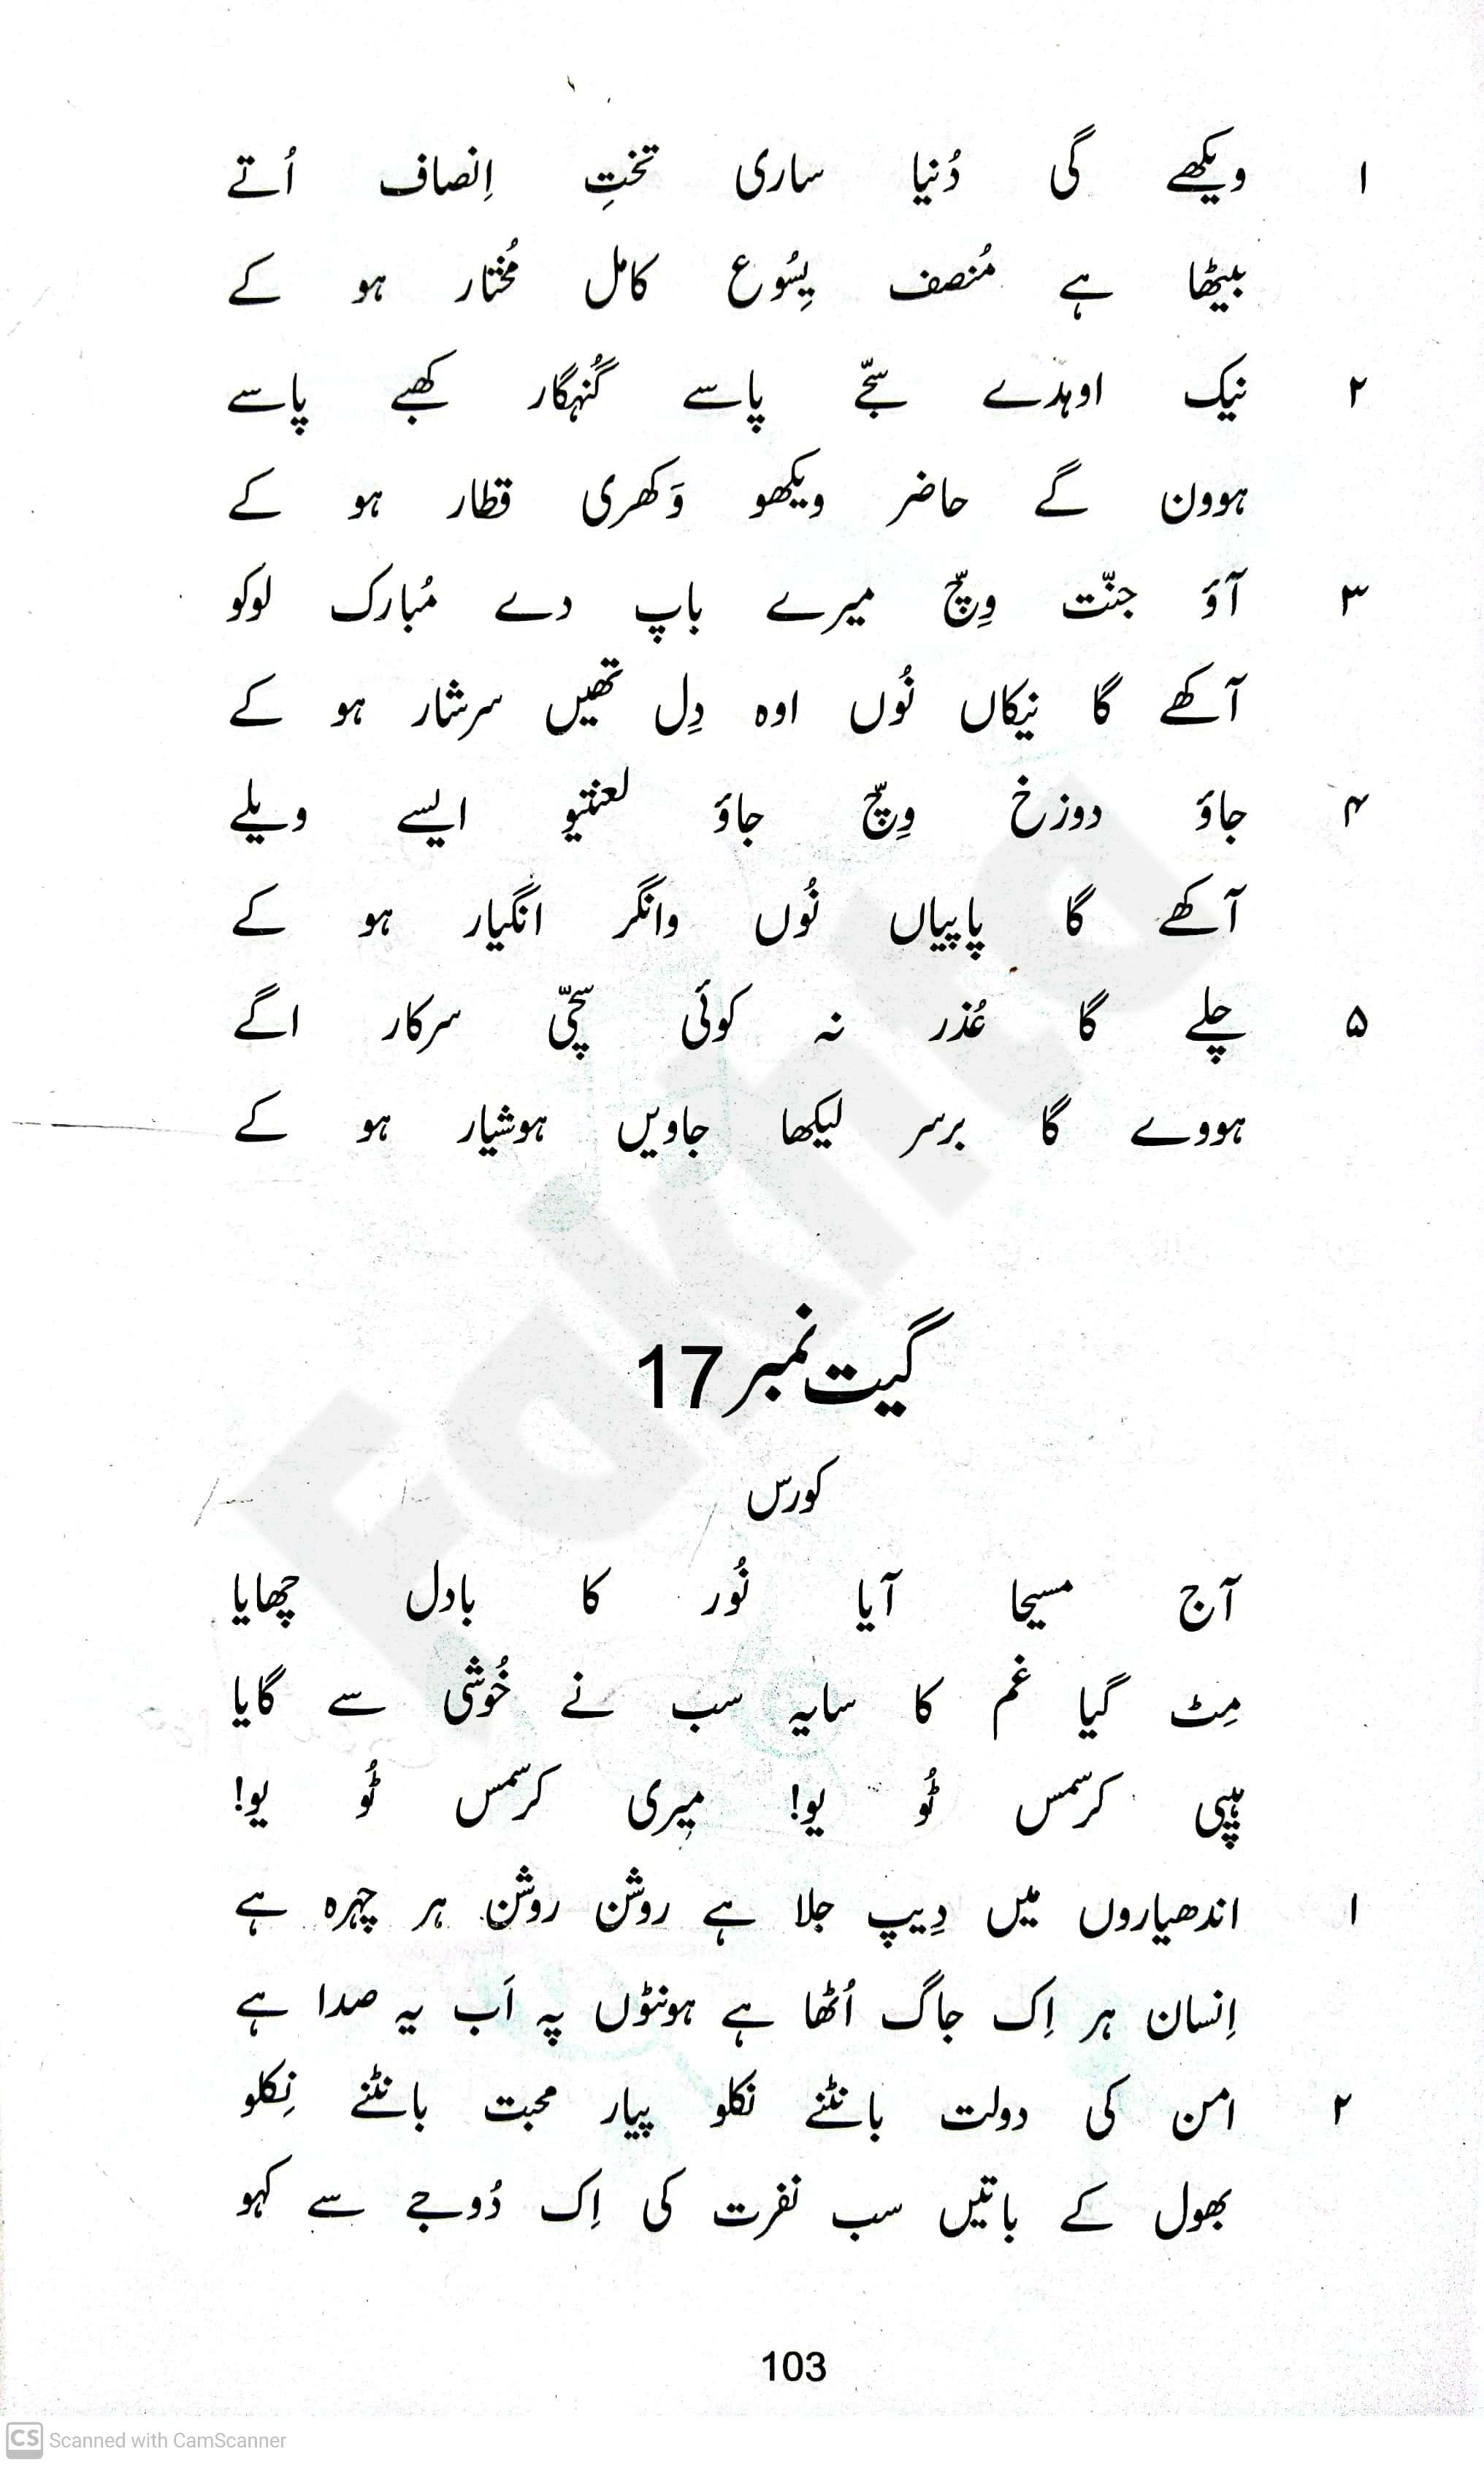 ۱ ویکھے گی دُنیا ساری تختِ اِنصاف اُتے
بیٹھا ہے مُنصف یِسُوع کامل مُختار ہو کے
۲ نیک اوہدے سجّے پاسے گُنہگار کھبے پاسے
ہوون گے حاضر ویکھو وَکھری قطار ہو کے
۳ آؤ جنّت وِچّ میرے باپ دے مُبارک لوکو
آکھے گا نیکاں نُوں اوہ دِل تھیں سرشار ہو کے
۴ جاؤ دوزخ وِچّ جاؤ لعنتیو ایسے ویلے
آکھے گا پاپیاں نُوں وانگر انگیار ہو کے
۵ چلے گا عُذر نہ کوئی سچّی سرکار اگے
ہووے گا برسر لیکھا جاویں ہوشیار ہو کے
گیت نمبر 17
کورس
آج مسیحا آیا نُور کا بادل چھایا
مِٹ گیا غم کا سایہ سب نے خُوشی سے گایا
ہیپی کرسمس ٹُو یو! میری کرسمس ٹُو یو!
۱ اندھیاروں میں دِیپ جلا ہے روشن روشن ہر چہرہ ہے
اِنسان ہر اِک جاگ اُٹھا ہے ہونٹوں پہ اَب یہ صدا ہے
۲ امن کی دولت بانٹنے نکلو پیار محبت بانٹنے نِکلو
بھول کے باتیں سب نفرت کی اِک دُوجے سے کہو
103
CS Scanned with CamScanner
Fakhta